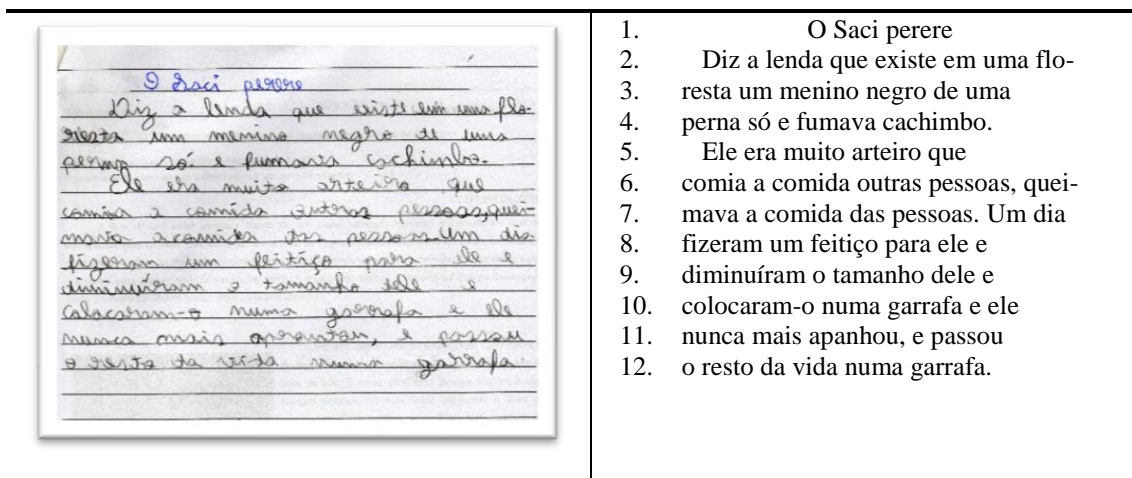 O Saci perere
Diz a lenda que existe em uma flo-
resta um menino negro de uma
perna só e fumava cachimbo.
Ele era muito arteiro que
comia a comida outras pessoas, quei-
mava a comida das pessoas. Um dia
fizeram um feitiço para ele e
diminuíram o tamanho dele e
colocaram-o numa garrafa e ele
nunca mais aprontou, e passou
o resto da vida numa garrafa.
1. O Saci perere
2. Diz a lenda que existe em uma flo-
3. resta um menino negro de uma
4. perna só e fumava cachimbo.
5. Ele era muito arteiro que
6. comia a comida outras pessoas, quei-
7. mava a comida das pessoas. Um dia
8. fizeram um feitiço para ele e
9. diminuíram o tamanho dele e
10. colocaram-o numa garrafa e ele
11. nunca mais apanhou, e passou
12. o resto da vida numa garrafa.